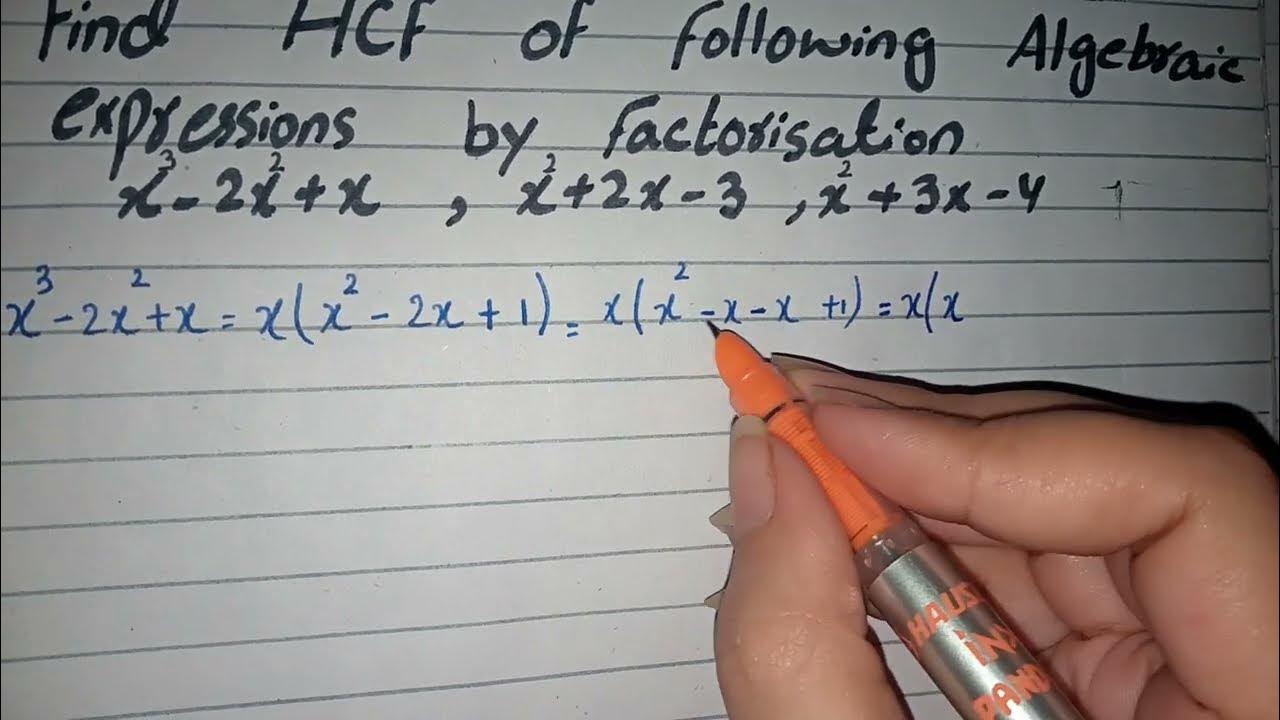 Find HCF of following Algebraic
expressions by factorisation
x³ - 2x² + x , x² + 2x - 3 , x² + 3x - 4
x³ - 2x² + x = x(x² - 2x + 1) = x(x² - x - x + 1) = x(x